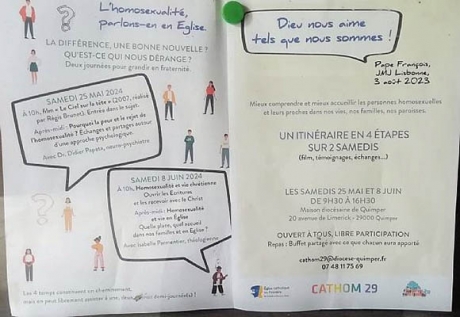 L'homosexualité,
parlons-en en Eglise.
LA DIFFÉRENCE, UNE BONNE NOUVELLE ?
QU'EST-CE QUI NOUS DÉRANGE ?
Deux journées pour grandir en fraternité.
SAMEDI 25 MAI 2024
À 10h, film « Le Ciel sur la tête » (2007, réalisé
par Régis Brunet). Entrée dans le sujet.
Après-midi : Pourquoi la peur et le rejet de
l'homosexualité ? Échanges et partages autour
d'une approche psychologique.
Avec Dr. Didier Papeta, neuro-psychiatre
SAMEDI 8 JUIN 2024
À 10h, Homosexualité et vie chrétienne
Ouvrir les Ecritures
et les recevoir avec le Christ
Après-midi : Homosexualité
et vie en Eglise
Quelle place, quel accueil
dans nos familles et en Eglise ?
Avec Isabelle Parmentier, théologienne
Les 4 temps constituent un cheminement,
mais on peut librement assister à une, deux, demi-journée(s) !
Dieu nous aime
tels que nous sommes !
Pape François,
JMJ Lisbonne,
3 août 2023
Mieux comprendre et mieux accueillir les personnes homosexuelles
et leurs proches dans nos vies, nos familles, nos paroisses.
UN ITINÉRAIRE EN 4 ÉTAPES
SUR 2 SAMEDIS
(film, témoignages, échanges...)
LES SAMEDIS 25 MAI ET 8 JUIN
DE 9H30 À 16H30
Maison diocésaine de Quimper
20 avenue de Limerick - 29000 Quimper
OUVERT À TOUS, LIBRE PARTICIPATION
Repas : Buffet partagé avec ce que chacun aura apporté
cathom29@diocese-quimper.fr
07 48 11 75 69
Église catholique
en Finistère
CATHOM 29